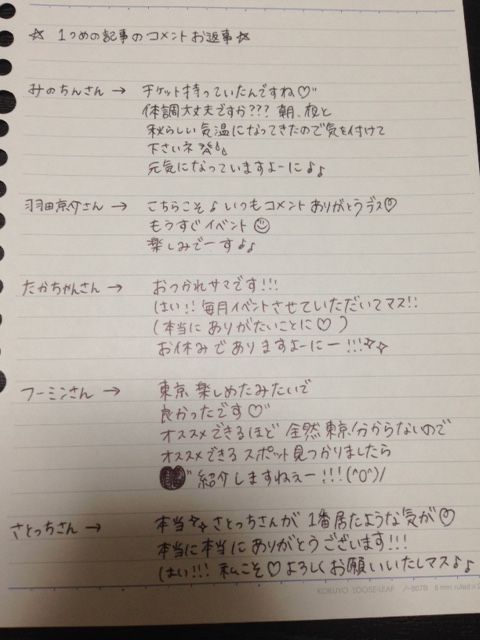 ☆ 1つめの記事のコメントお返事☆
みのちんさん → チケット持っていたんですね♡
体調大丈夫ですか??? 朝、夜と
秋らしい気温になってきたので気を付けて
下さいネ
元気になっていますよーに♪♪
羽田京介さん → こちらこそ♪いつもコメントありがとうデス♡
もうすぐイベント☺
楽しみでーす♪♪
たかちゃんさん → おつかれサマです!!!
はい!! 毎月イベントさせていただいてマス!!
(本当にありがたいことに♡)
お休みでありますよーにー!!!
フーミンさん → 東京楽しめたみたいで
良かったです♡
オススメできるほど全然東京分からないので
オススメできるスポット見つかりましたら
紹介しますねぇー!!!(^0^)/
さとっちさん → 本当 さとっちさんが1番居たような気が♡
本当に本当にありがとうございます!!!
はい!!! 私こそ♡よろしくお願いいたしマス♪♪
KOKUYO LOOSE-LEAF